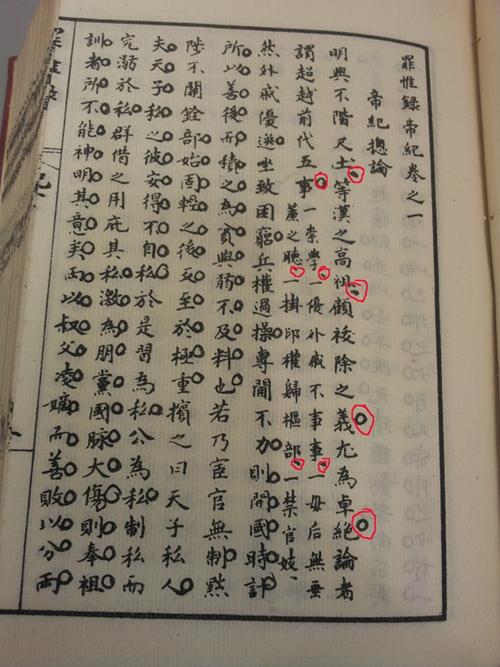 罪惟錄帝紀卷之一
帝紀總論
明興不階尺土等漢之高祖顧祓除之義尤為卓絕論者
謂超越前代五事一崇學一優外戚不事事一母后無垂
簾之聽一掛印權歸樞部一禁官妓、
然外戚優選坐致困竆兵權過操專閫不力則開國時計
所以善後而積之為貧與弱不及料也若乃宦官無制黙
陛不關銓部始固輕之後反至於極重擯之曰天子私人
夫天子私之彼安得不自私於是習為私公為私制私而
完溺於私群借之用庇其私激為朋黨國脉大傷則奉祖
訓者所不能神明其意矣而以叔父凌嫡而善敗以分而